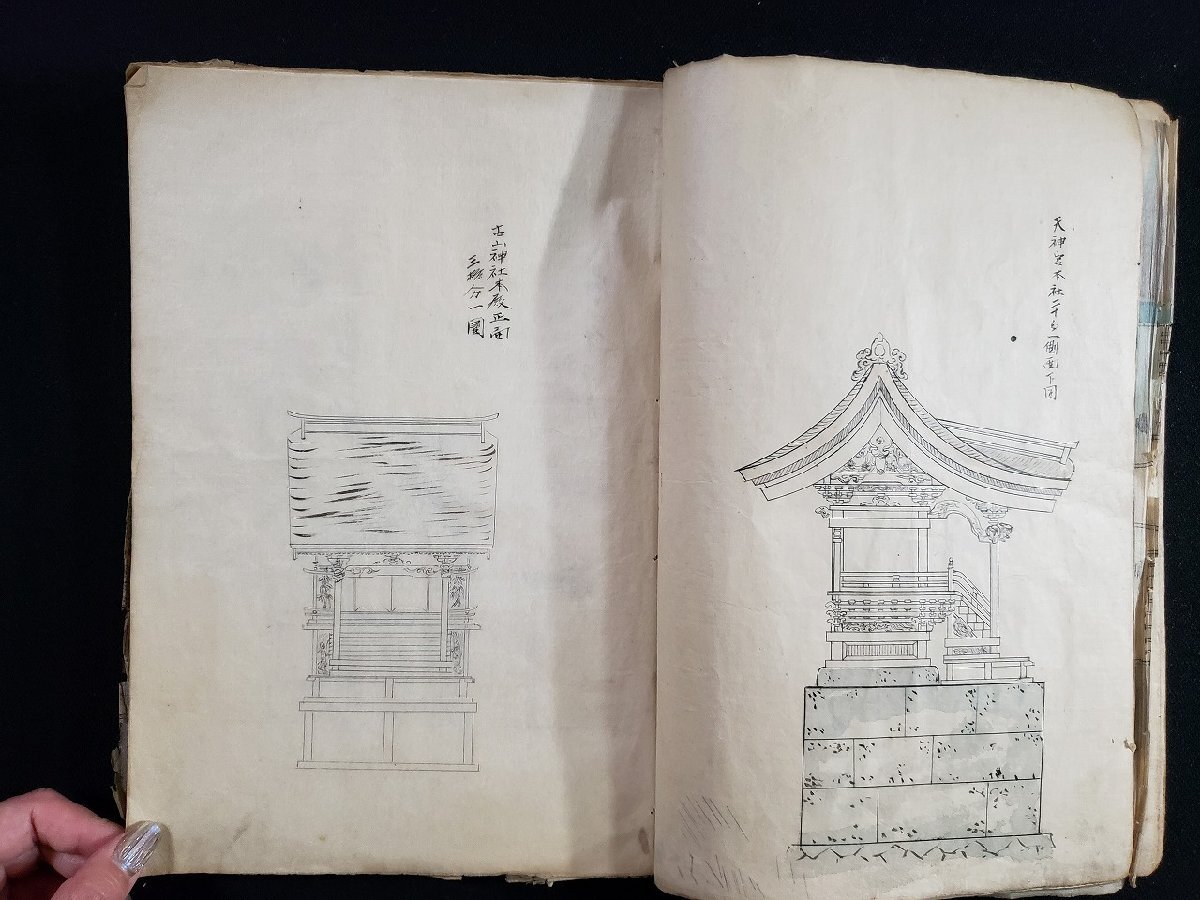 天神宮本社二十分一側面下図
古山神社本殿正面
三拾分一図